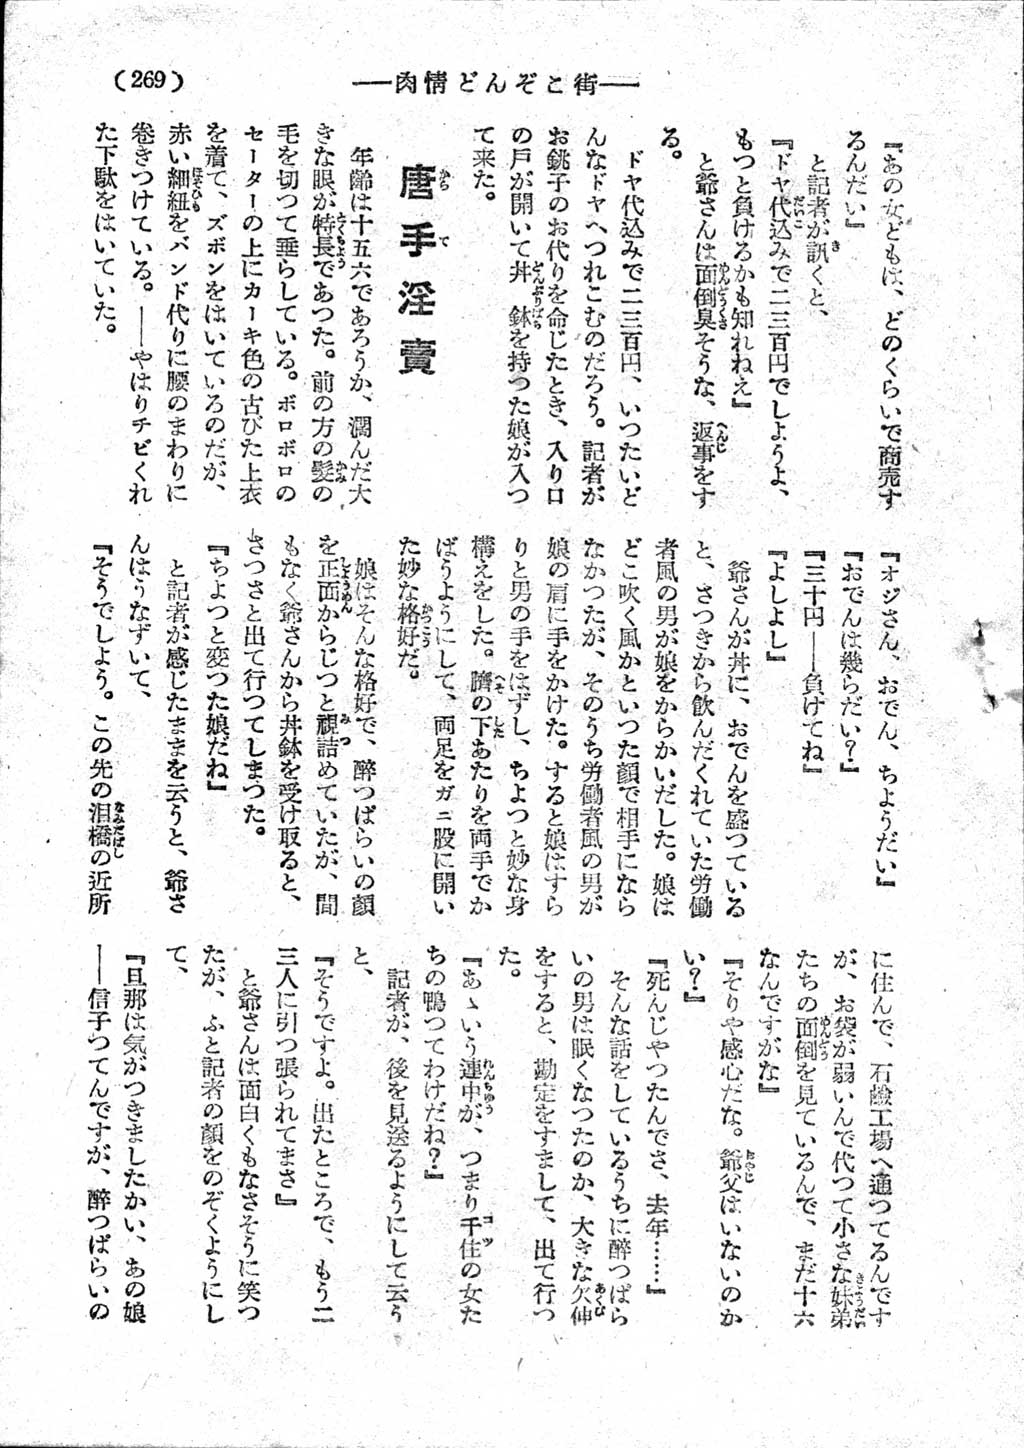 (269)
――肉情どんぞこ街――
『あの女どもは、どのくらいで商売す
るんだい』
と記者が訊くと、
『ドヤ代込みで二三百円でしようよ、
もつと負けるかも知れねえ』
と爺さんは面倒臭そうな、返事をす
る。
ドヤ代込みで二三百円、いつたいど
んなドヤへつれこむのだろう。記者が
お銚子のお代りを命じたとき、入り口
の戸が開いて丼鉢を持つた娘が入つ
て来た。
唐手淫賣
年齢は十五六であろうか、濶んだ大
きな眼が特長であつた。前の方の髪の
毛を切つて垂らしている。ボロボロの
セーターの上にカーキ色の古びた上衣
を着て、ズボンをはいているのだが、
赤い細紐をバンド代りに腰のまわりに
巻きつけている。――やはりチビくれ
た下駄をはいていた。
『オジさん、おでん、ちようだい』
『おでんは幾らだい？』
『三十円――負けてね』
『よしよし』
爺さんが丼に、おでんを盛つている
と、さつきから飲んだくれていた労働
者風の男が娘をからかいだした。娘は
どこ吹く風かといつた顔で相手になら
なかつたが、そのうち労働者風の男が
娘の肩に手をかけた。すると娘はすら
りと男の手をはずし、ちよつと妙な身
構えをした。臍の下あたりを両手でか
ばうようにして、両足をガニ股に開い
た妙な格好だ。
娘はそんな格好で、酔つぱらいの顔
を正面からじつと視詰めていたが、間
もなく爺さんから丼鉢を受け取ると、
さつさと出て行つてしまつた。
『ちよつと変つた娘だね』
と記者が感じたままを云うと、爺さ
んはうなずいて、
『そうでしよう。この先の泪橋の近所
に住んで、石鹼工場へ通つてるんです
が、お袋が弱いんで代つて小さな妹弟
たちの面倒を見ているんで、まだ十六
なんですがな』
『そりや感心だな。爺父はいないのか
い？』
『死んじやつたんでさ、去年……』
そんな話をしているうちに酔つぱら
いの男は眠くなつたのか、大きな欠伸
をすると、勘定をすまして、出て行つ
た。
『あゝいう連中が、つまり千住の女た
ちの鴨つてわけだね？』
記者が、後を見送るようにして云う
と、
『そうですよ。出たところで、もう二
三人に引つ張られてまさ』
と爺さんは面白くもなさそうに笑つ
たが、ふと記者の顔をのぞくようにし
て、
『旦那は気がつきましたかい、あの娘
――信子つてんですが、酔つぱらいの